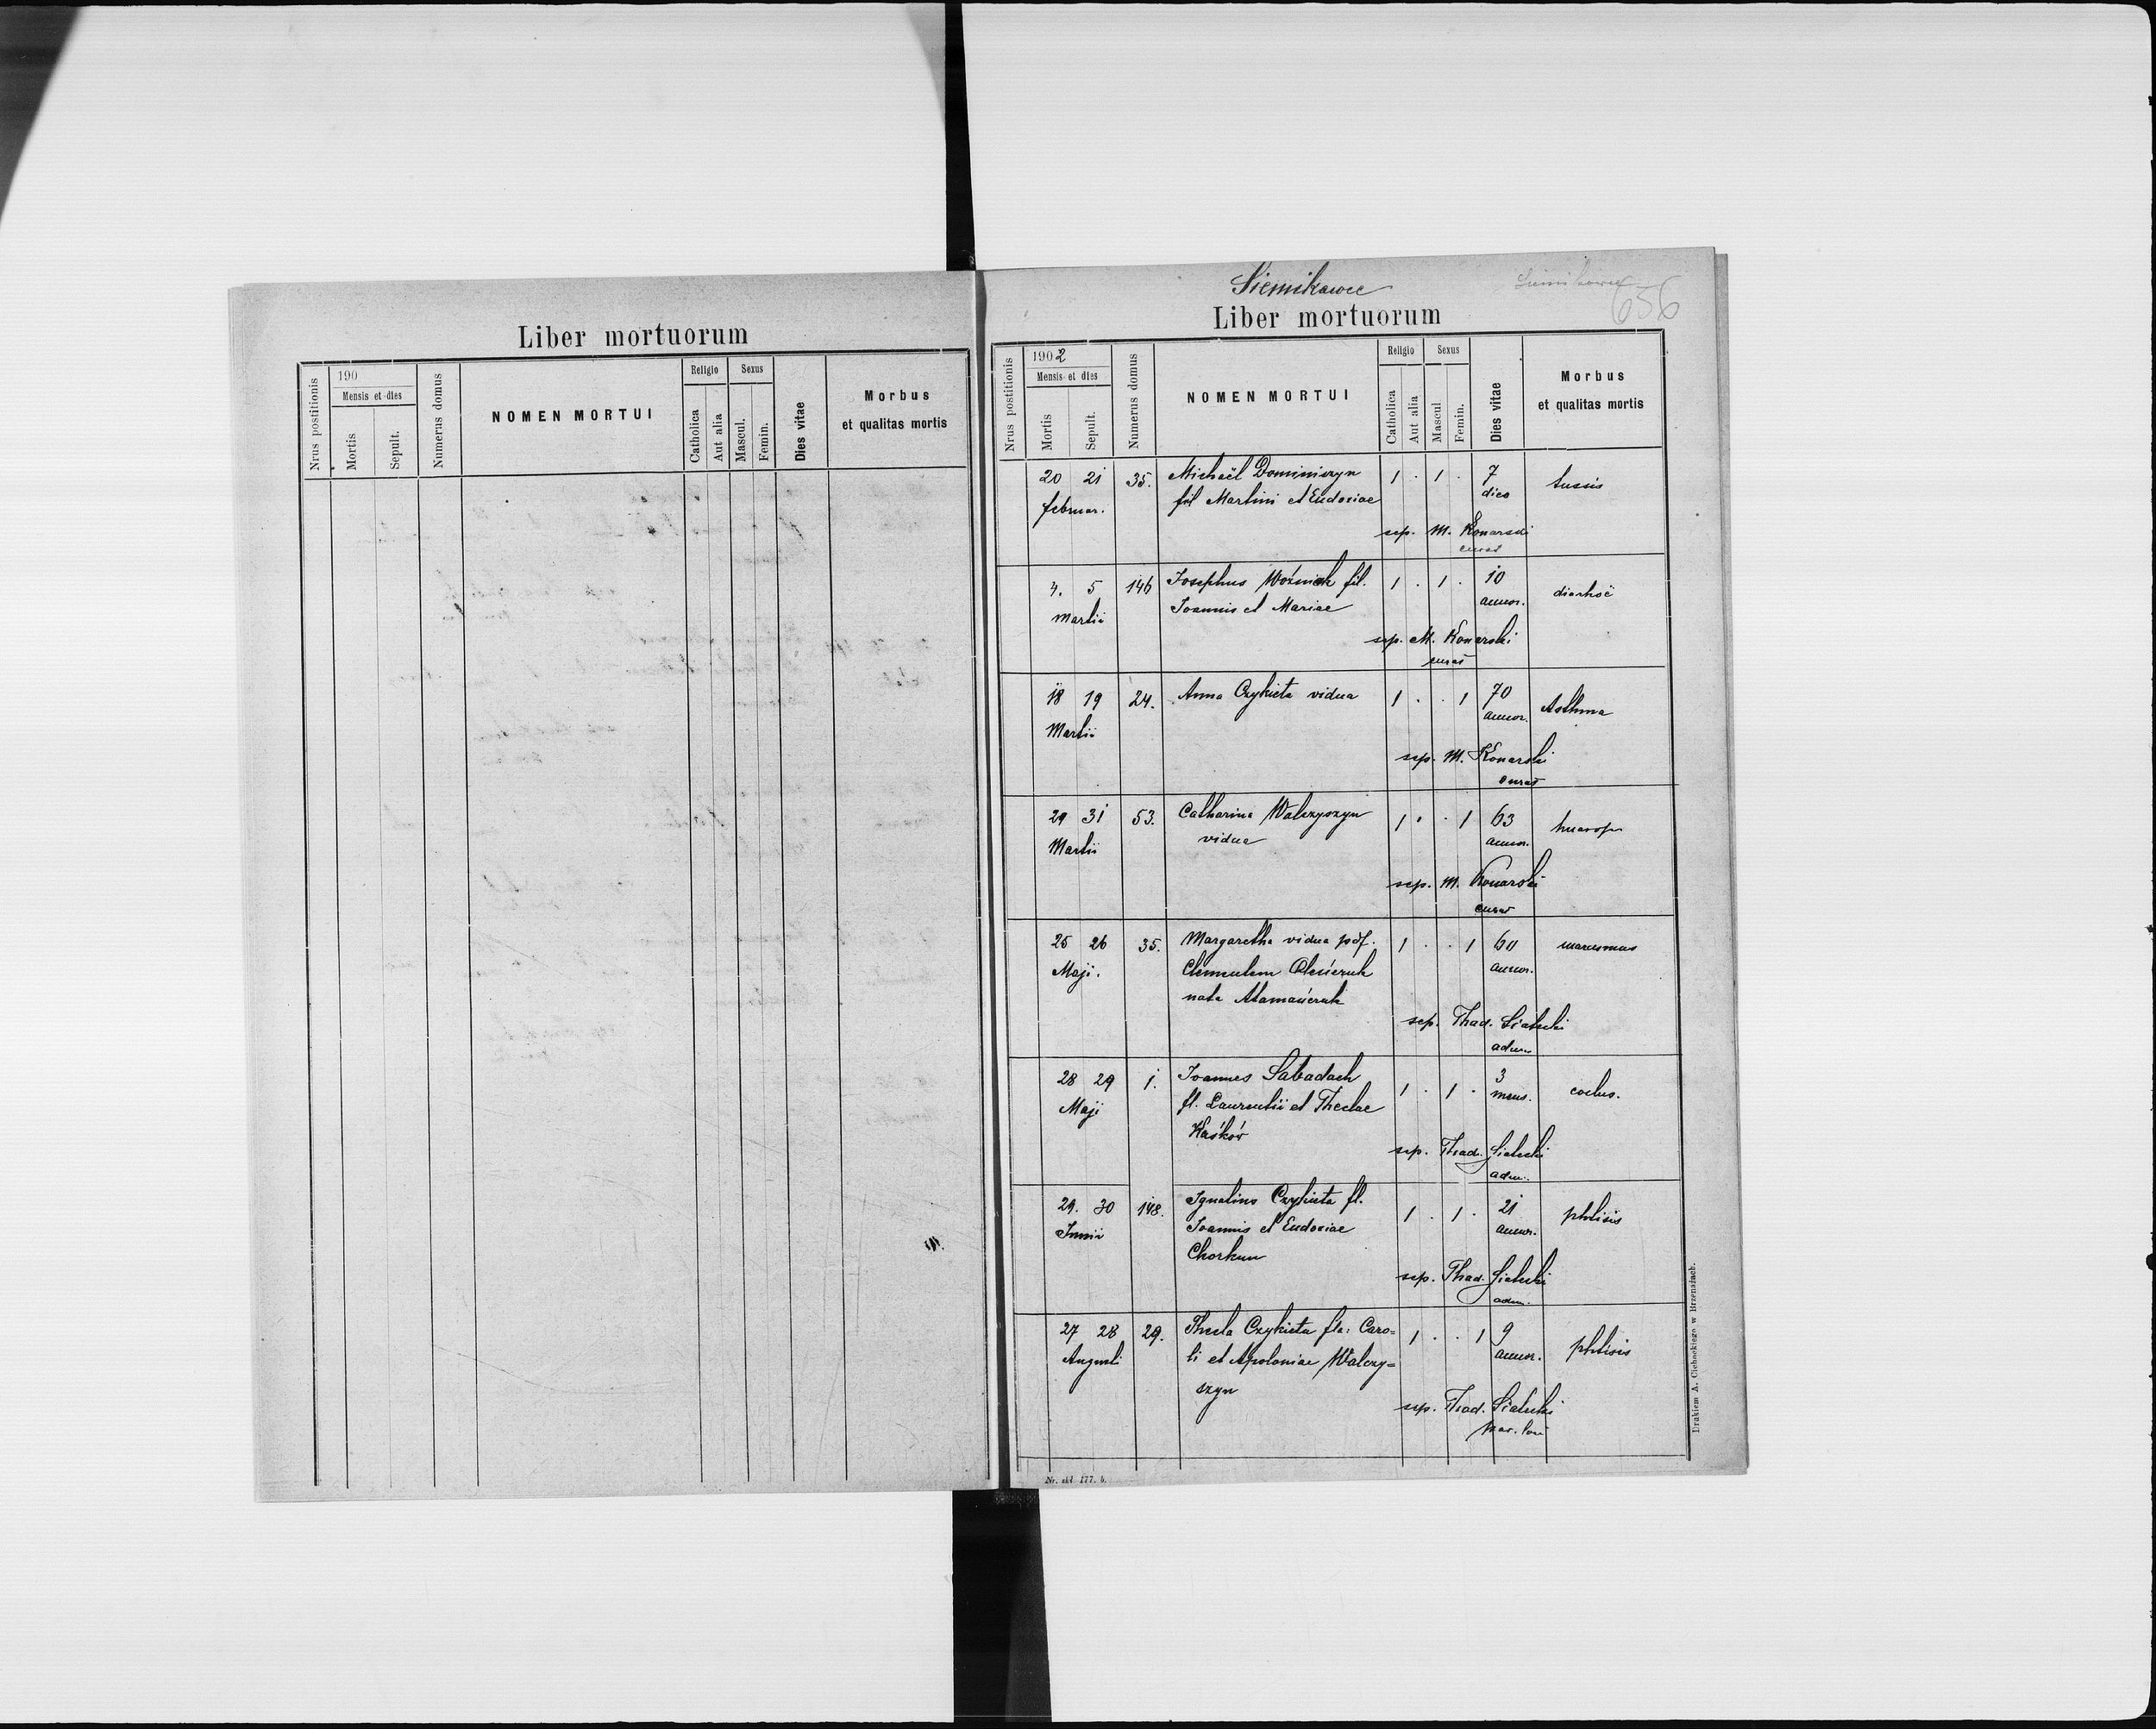 Liber mortuorum
Nrus postitionis
190
Mensis et dies
Mortis
Sepult.
Numerus domus
NOMEN MORTUI
Religio
Catholica
Aut alia
Sexus
Mascul.
Femin.
Dies vitae
Morbus
et qualitas mortis
Siemikowce
Siemikowce
656
Liber mortuorum
Nrus postitionis
1902
Mensis et dies
Mortis
Sepult.
Numerus domus
NOMEN MORTUI
Religio
Catholica
Aut alia
Sexus
Mascul
Femin.
Dies vitae
Morbus
et qualitas mortis
20 21 35. Michaël Dominiszyn 1 . 1 . 7 tussis
februar. fil Martini et Eudoxiae dies
sep. M. Konarski
curat
4. 5 146 Josephus Woźniak fil. 1 . 1 . 10 diarhoë
Martii Joannis et Mariae annor.
sep. M. Konarski
curat
18 19 24. Anna Czykieta vidua 1 . . 1 70 Asthma
Martii annor.
sep. M. Konarski
curat
29 31 53. Catharina Walczyszyn 1 . . 1 63
Martii vidua annor.
sep. M. Konarski
curat
25 26 35. Margaretha vidua post 1 . . 1 60 marasmus
Maji. Clementem Oleśczuk annor.
nata Atamańczuk
sep. Thad. Sialecki
adm.
28 29 1. Joannes Sabadach 1 . 1 . 3
Maji fl. Laurentii et Theclae mens.
Kaśków
sep. Thad. Sialecki
adm.
29. 30 148. Ignatius Czykieta fl. 1 . 1 . 21 phtisis
Junii Joannis et Eudoxiae annor.
Chorkun
sep. Thad. Sialecki
adm.
27 28 29. Thecla Czykieta fla: Caro= 1 . . 1 9 phtisis
Augusti li et Apoloniae Walczy= annor.
szyn
sep. Thad. Sialecki
Nr. skł. 177. b.
Drukiem A. Cichockiego w Brzeżanach.